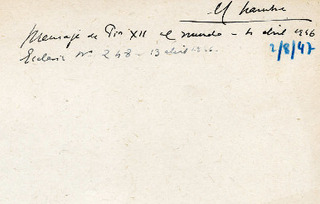 El hambre
Mensaje de Pío XII al mundo - 4 abril 1946
Ecclesia Nº 248 - 13 abril 1946.
2/8/47